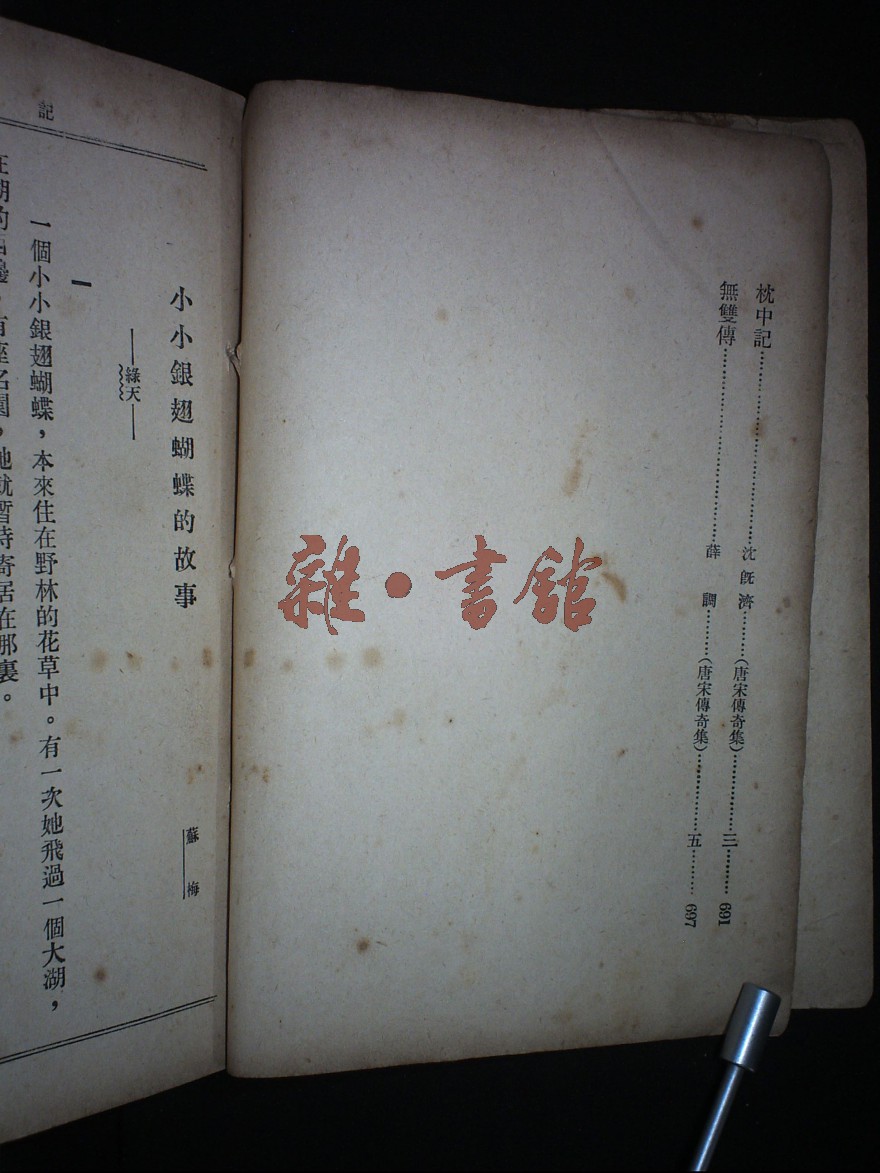 枕中記……沈既濟……(唐宋傳奇集)……三……691
無雙傳……薛調……(唐宋傳奇集)……五……697
雜·書館
記
小小銀翅蝴蝶的故事
蘇梅
——綠天——
一
一個小小銀翅蝴蝶，本來住在野林的花草中。有一次她飛過一個大湖，
湖的邊，有座名園，她就暫時寄居在那裏。